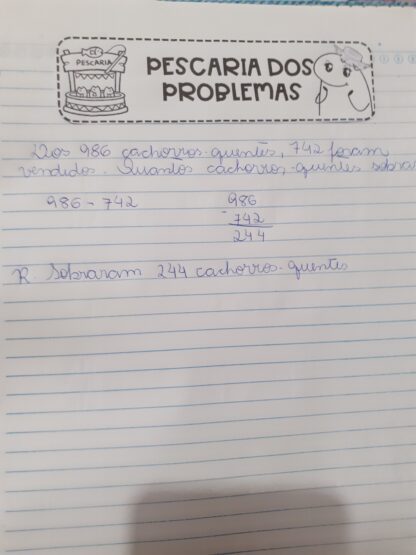 PESCARIA
PESCARIA DOS
PROBLEMAS
Dos 986 cachorros-quentes, 742 foram
vendidos. Quantos cachorros-quentes sobra
986 - 742
986
- 742
244
R. Sobraram 244 cachorros-quentes